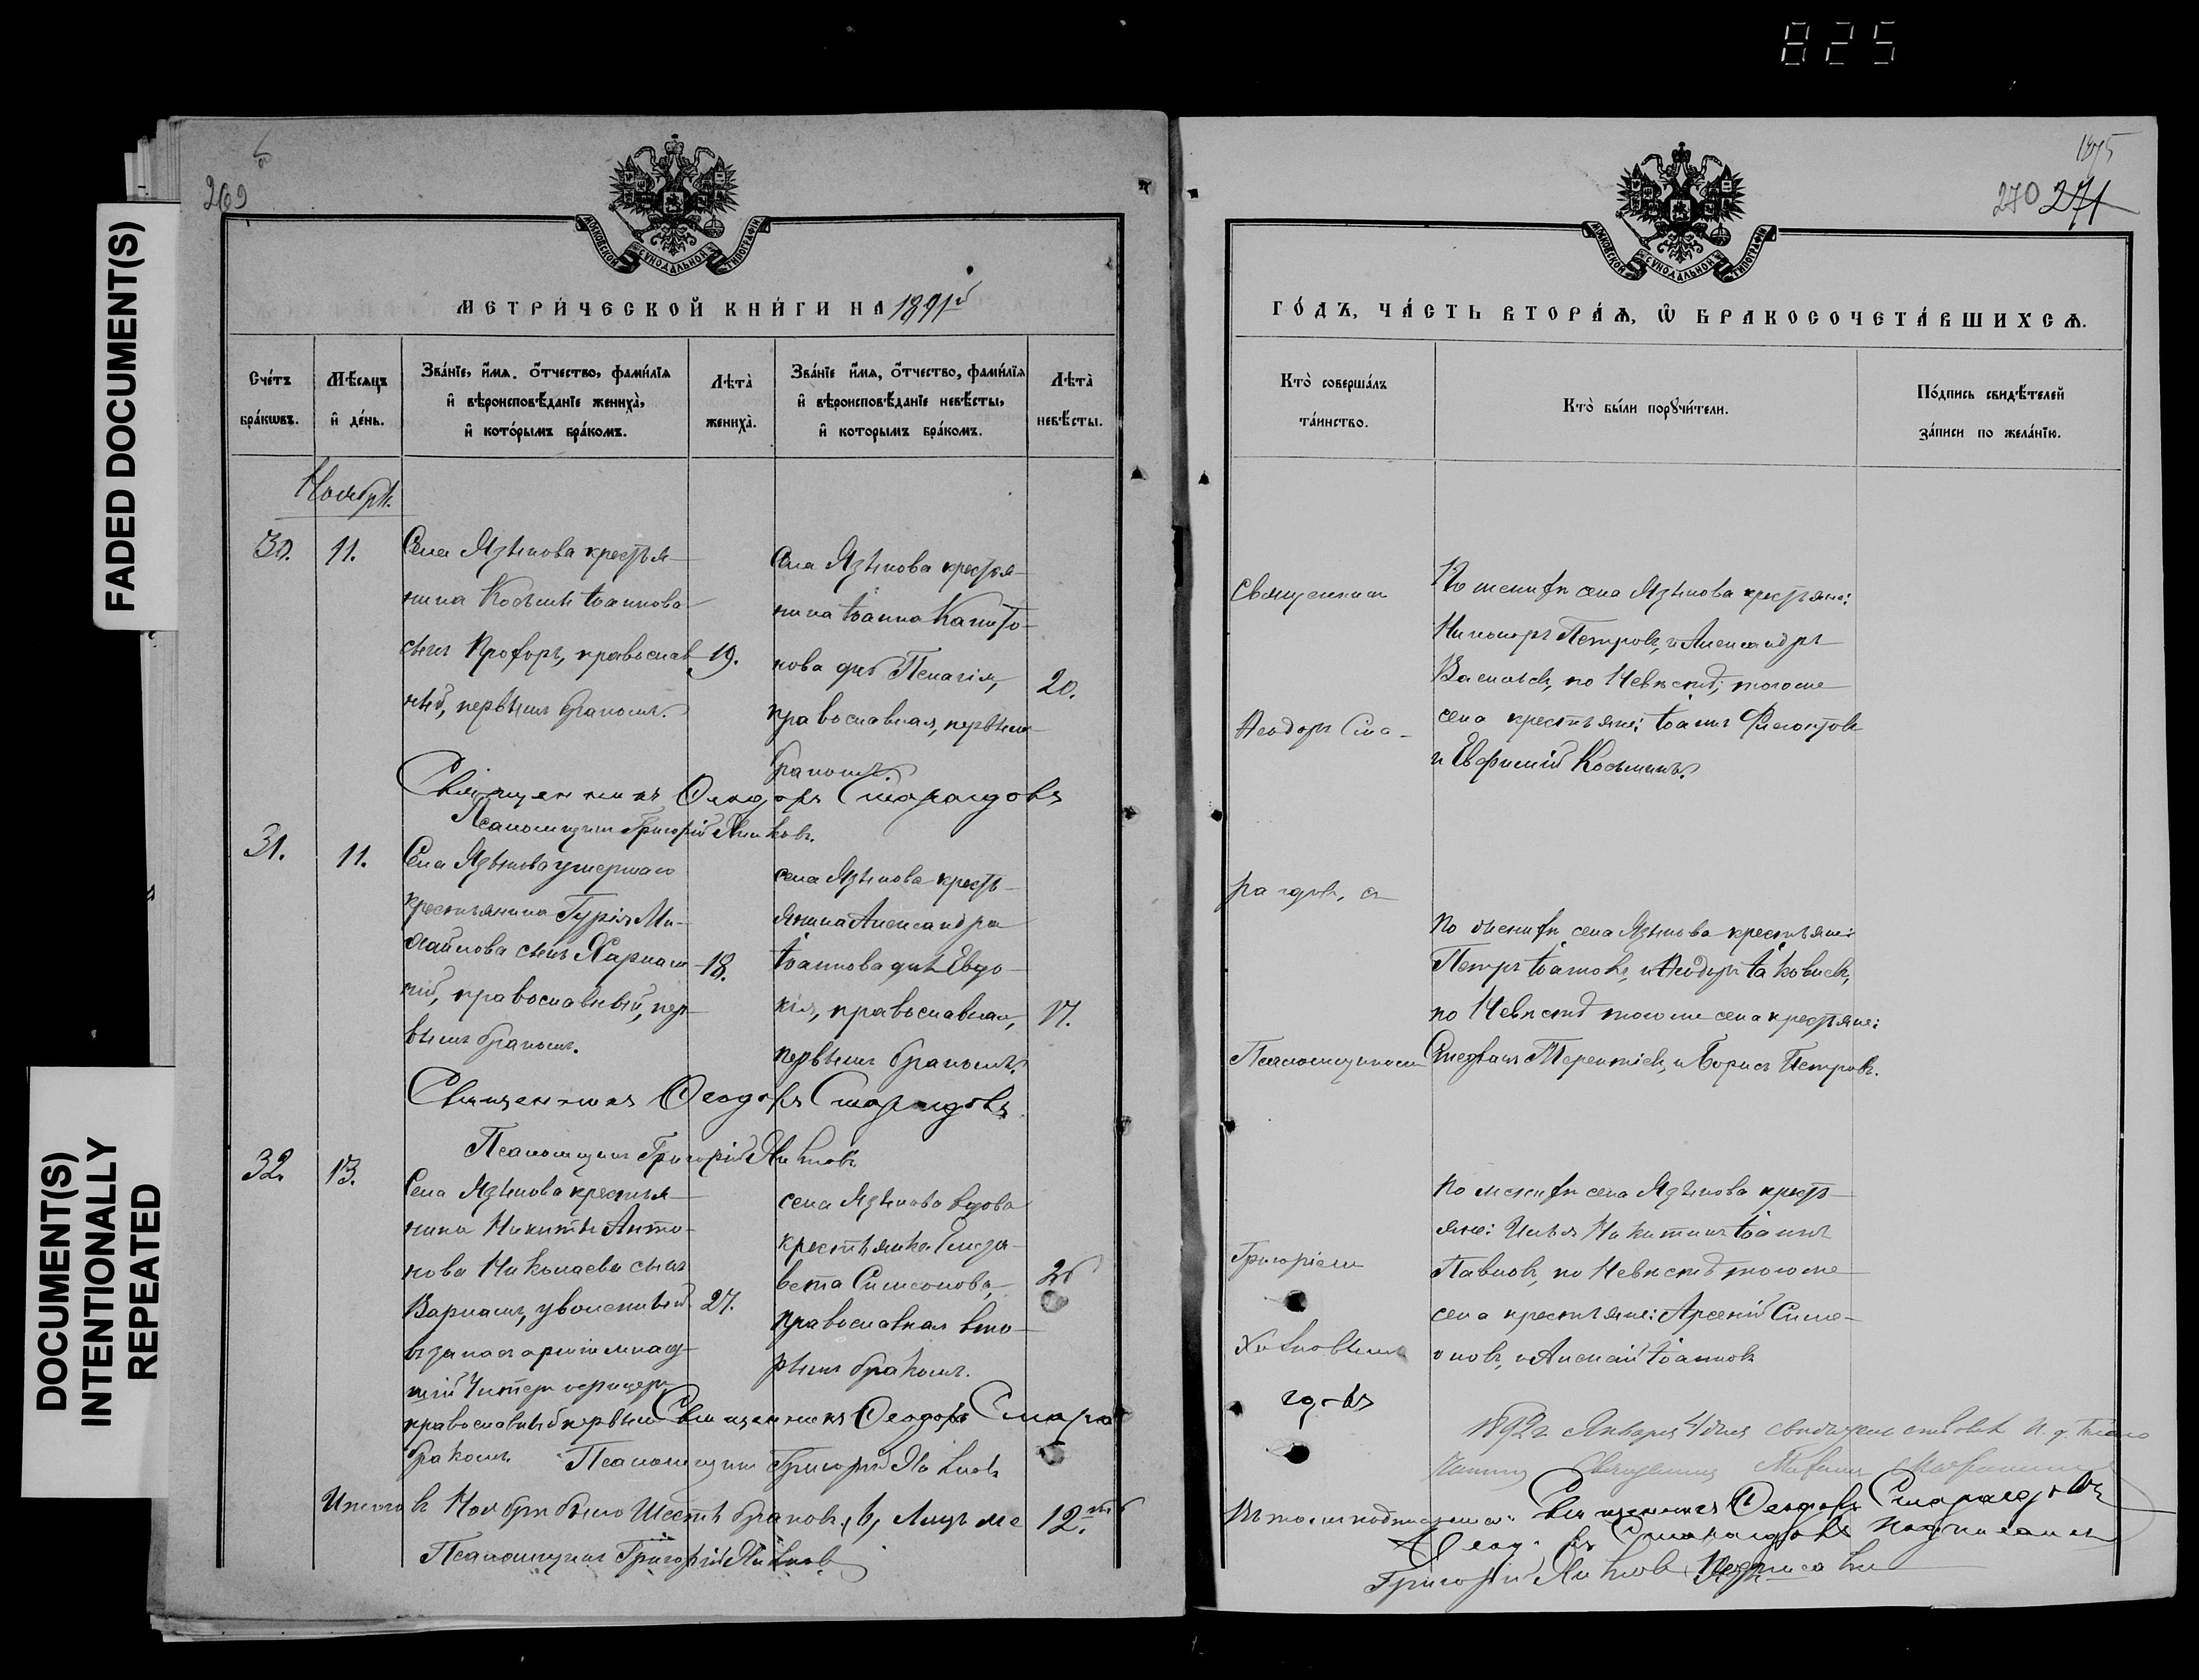 825
FADED DOCUMENT(S)
DOCUMENT(S)
INTENTIONALLY
REPEATED
269
МОСКОВСКОЙ СѴНОДАЛЬНОЙ ТИПОГРАФІИ
МЕТРИ́ЧЕСКОЙ КНИ́ГИ НА 1891й
Сче́тъ бра́кѡвъ.
Мѣ́сяцъ и҆ де́нь.
Зва́нїе, и҆́мя, ѻ҆́тчество, фами́лїя и҆ вѣроисповѣ́данїе жениха̀, и҆ кото́рымъ бра́комъ.
Лѣта̀ жениха̀.
Зва́нїе и҆́мя, ѻ҆́тчество, фами́лїя и҆ вѣроисповѣ́данїе невѣ́сты, и҆ которымъ бра́комъ.
Лѣта̀ невѣ́сты.
Ноябрь.
30.
11.
Села Языкова крестья-
нина Косьмы Іоаннова
сынъ Прохоръ, православ-
ный, первымъ бракомъ.
19.
Села Языкова крестья-
нина Іоанна Капито-
нова
Пелагія,
православная, первымъ
бракомъ.
20.
Священникъ Ѳеодоръ Смарагдовъ
Псаломщикъ Григорій
31.
11.
Села Языкова умершаго
крестьянина Гурія Ми-
хайлова сынъ
православный, пер-
вымъ бракомъ.
18.
села Языкова кресть-
янина Александра
Іоаннова дочь Евдо-
кія, православная,
первымъ бракомъ.
17.
Священникъ Ѳеодоръ Смарагдовъ
Псаломщикъ Григорій
32.
13.
Села Языкова крестья-
нина Никиты Анто-
нова Николаева сынъ
уволенный
въ запасъ арміи млад-
шій унтеръ офицеръ
православный первымъ
бракомъ
27.
села Языкова вдова
крестьянка Елиза-
вета Симеонова,
православная вто-
рымъ бракомъ.
26
Священникъ Ѳеодоръ Смараг
Псаломщикъ Григорій
Итого въ Ноябрѣ было Шесть браковъ, 6, лицъ же 12.
Псаломщикъ Григорій
270 271
МОСКОВСКОЙ СѴНОДАЛЬНОЙ ТИПОГРАФІИ
ГО́ДЪ, ЧА́СТЬ ВТОРА́Я, Ѡ҆ БРАКОСОЧЕТА́ВШИХСЯ.
Кто̀ соверша́лъ та́инство.
Кто̀ бы́ли порꙋчи́тели.
По́дпись свидѣ́телей за́писи по жела́нїю.
Священникъ
Ѳеодоръ Сма-
рагдовъ, съ
Псаломщикомъ
Григоріемъ
По женихѣ села Языкова крестьяне:
Никаноръ Петровъ, и Александръ
Васильевъ, по Невѣстѣ; того же
села крестьяне: Іоаннъ
и Евфимій Косьминъ.
По женихѣ села Языкова крестьяне:
Петръ Іоанновъ, и Ѳеодоръ Іаковлевъ,
по Невѣстѣ того же села крестьяне:
Терентіевъ, и Борисъ Петровъ.
По женихѣ села Языкова кресть-
яне: Илья Никитинъ Іоаннъ
Павловъ, по Невѣстѣ того же
села крестьяне: Арсеній Симе-
оновъ, и Алексій Іоанновъ
1892 г. Января 4 дня
Священникъ
Въ томъ подписуемся: Священникъ Ѳеодоръ Смарагдовъ
Григорій